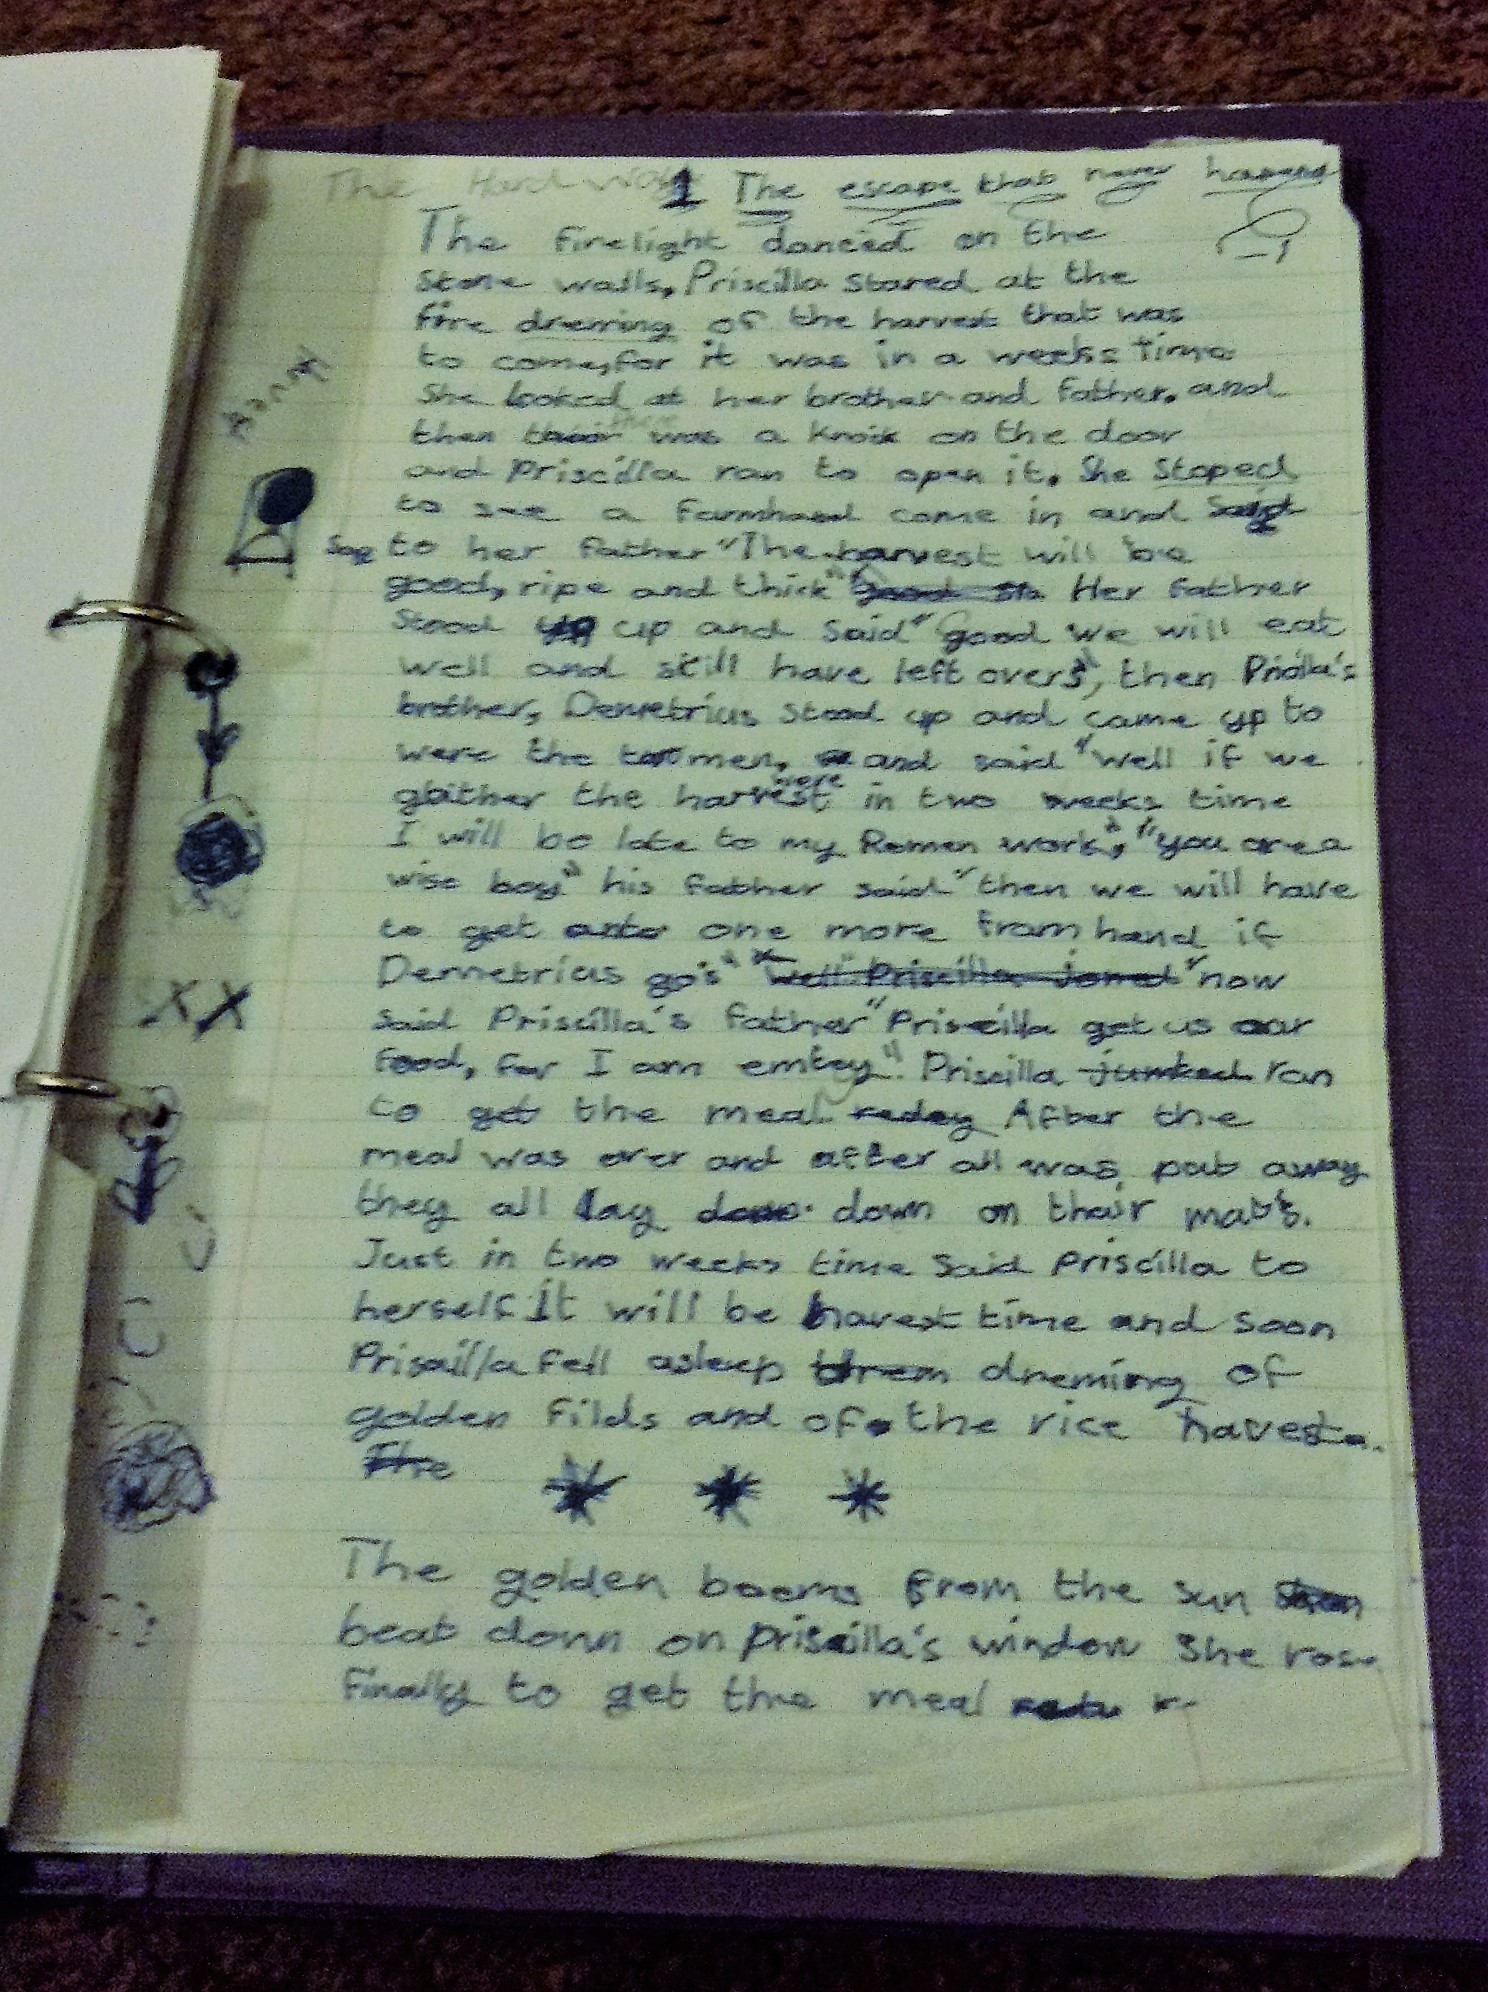 The Hard 1 The escape that never
The firelight danced on the
stone walls, Priscilla stared at the
fire dreming of the harvest that was
to come, for it was in a weeks time
She looked at her brother and father. and
then was a knock on the door
and Priscilla ran to open it. She stoped
to see a farmhand come in and said
say to her father "The harvest will be
good, ripe and thick" Her father
stood up and said "good we will eat
well and still have left overs", then
brother, Demetrius stood up and came up to
were the men, and said "well if we
gather the harvest were in two weeks time
I will be late to my Roman work", "you are a
wise boy" his father said "then we will have
to get one more framhand if
Demetrius go's" "well" Priscilla "now
said Priscilla's father "Priscilla get us our
food, for I am emtey". Priscilla junked ran
to get the meal redey After the
meal was over and after all was put away
they all lay down on thair mats.
Just in two weeks time said Priscilla to
herself It will be harvest time and soon
Priscilla fell asleep drem dreming of
golden filds and of the rice harvest.
The
The golden beems from the sun
beat down on Priscilla's window She rose
finally to get the meal